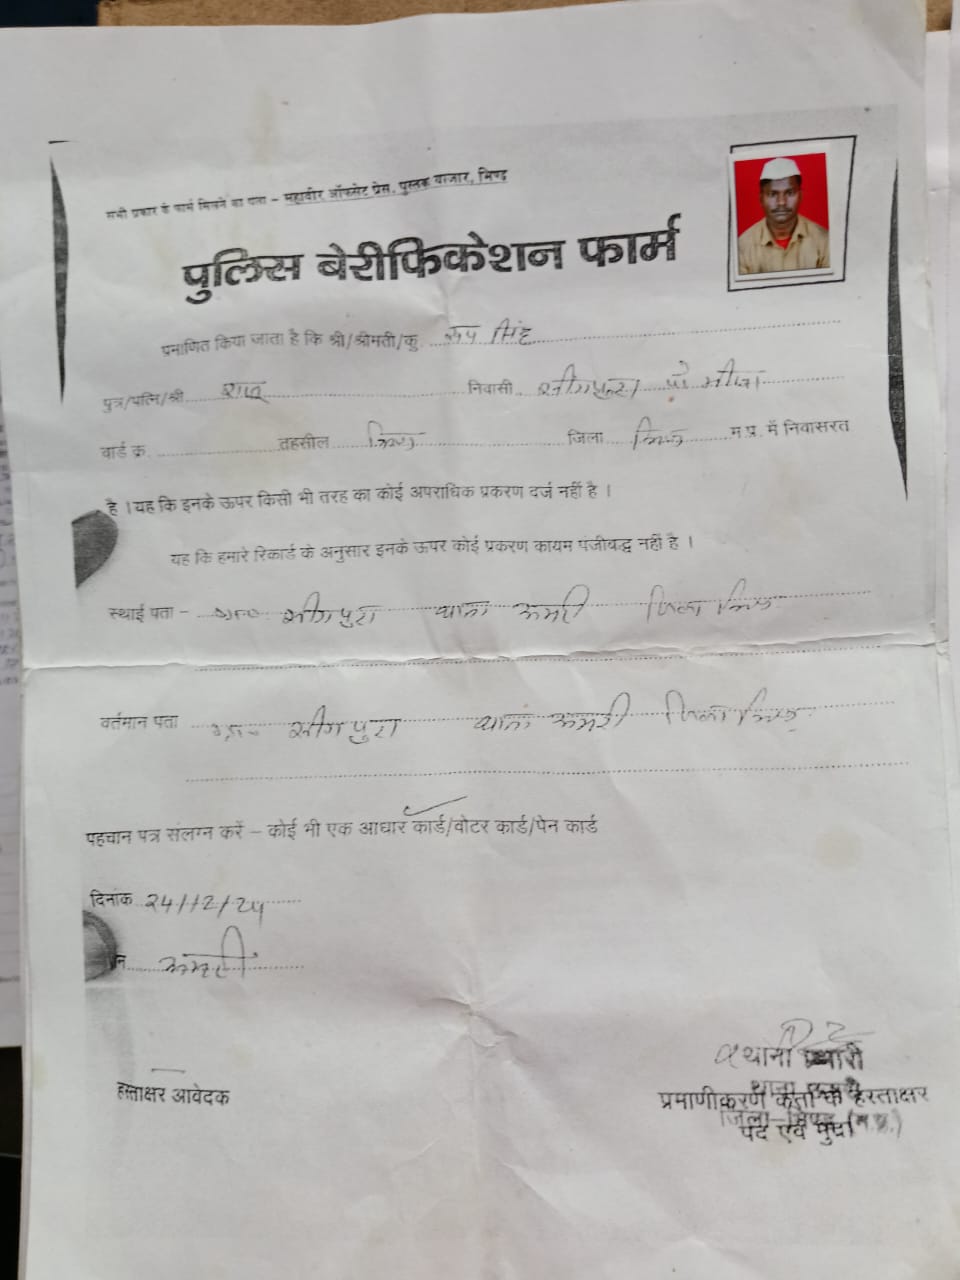 सभी प्रकार के फार्म मिलने का पता - महावीर ऑफसेट प्रेस, पुस्तक बाजार, भिण्ड
पुलिस बेरीफिकेशन फार्म
प्रमाणित किया जाता है कि श्री/श्रीमती/कु. रूप सिंह
पुत्र/पत्नि/श्री राजू निवासी
वार्ड क्र. तहसील भिण्ड जिला भिण्ड म.प्र. में निवासरत
है । यह कि इनके ऊपर किसी भी तरह का कोई अपराधिक प्रकरण दर्ज नहीं है ।
यह कि हमारे रिकार्ड के अनुसार इनके ऊपर कोई प्रकरण कायम पंजीवद्ध नहीं है ।
स्थाई पता - थाना ऊमरी जिला भिण्ड
वर्तमान पता थाना ऊमरी जिला भिण्ड
पहचान पत्र संलग्न करें - कोई भी एक आधार कार्ड/वोटर कार्ड/पेन कार्ड
दिनांक 24/12/24
ऊमरी
थाना प्रभारी
हस्ताक्षर आवेदक प्रमाणीकरण कर्ता के हस्ताक्षर
जिला-भिण्ड (म.प्र.)
पद एवं मुद्रा